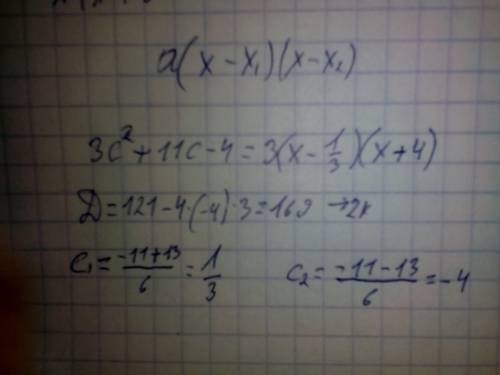 a(x-x₁)(x-x₂)
3c²+11c-4=3(x-1/3)(x+4)
D=121-4·(-4)·3=169 →2к
c₁=(-11+13)/6=1/3 c₂=(-11-13)/6=-4